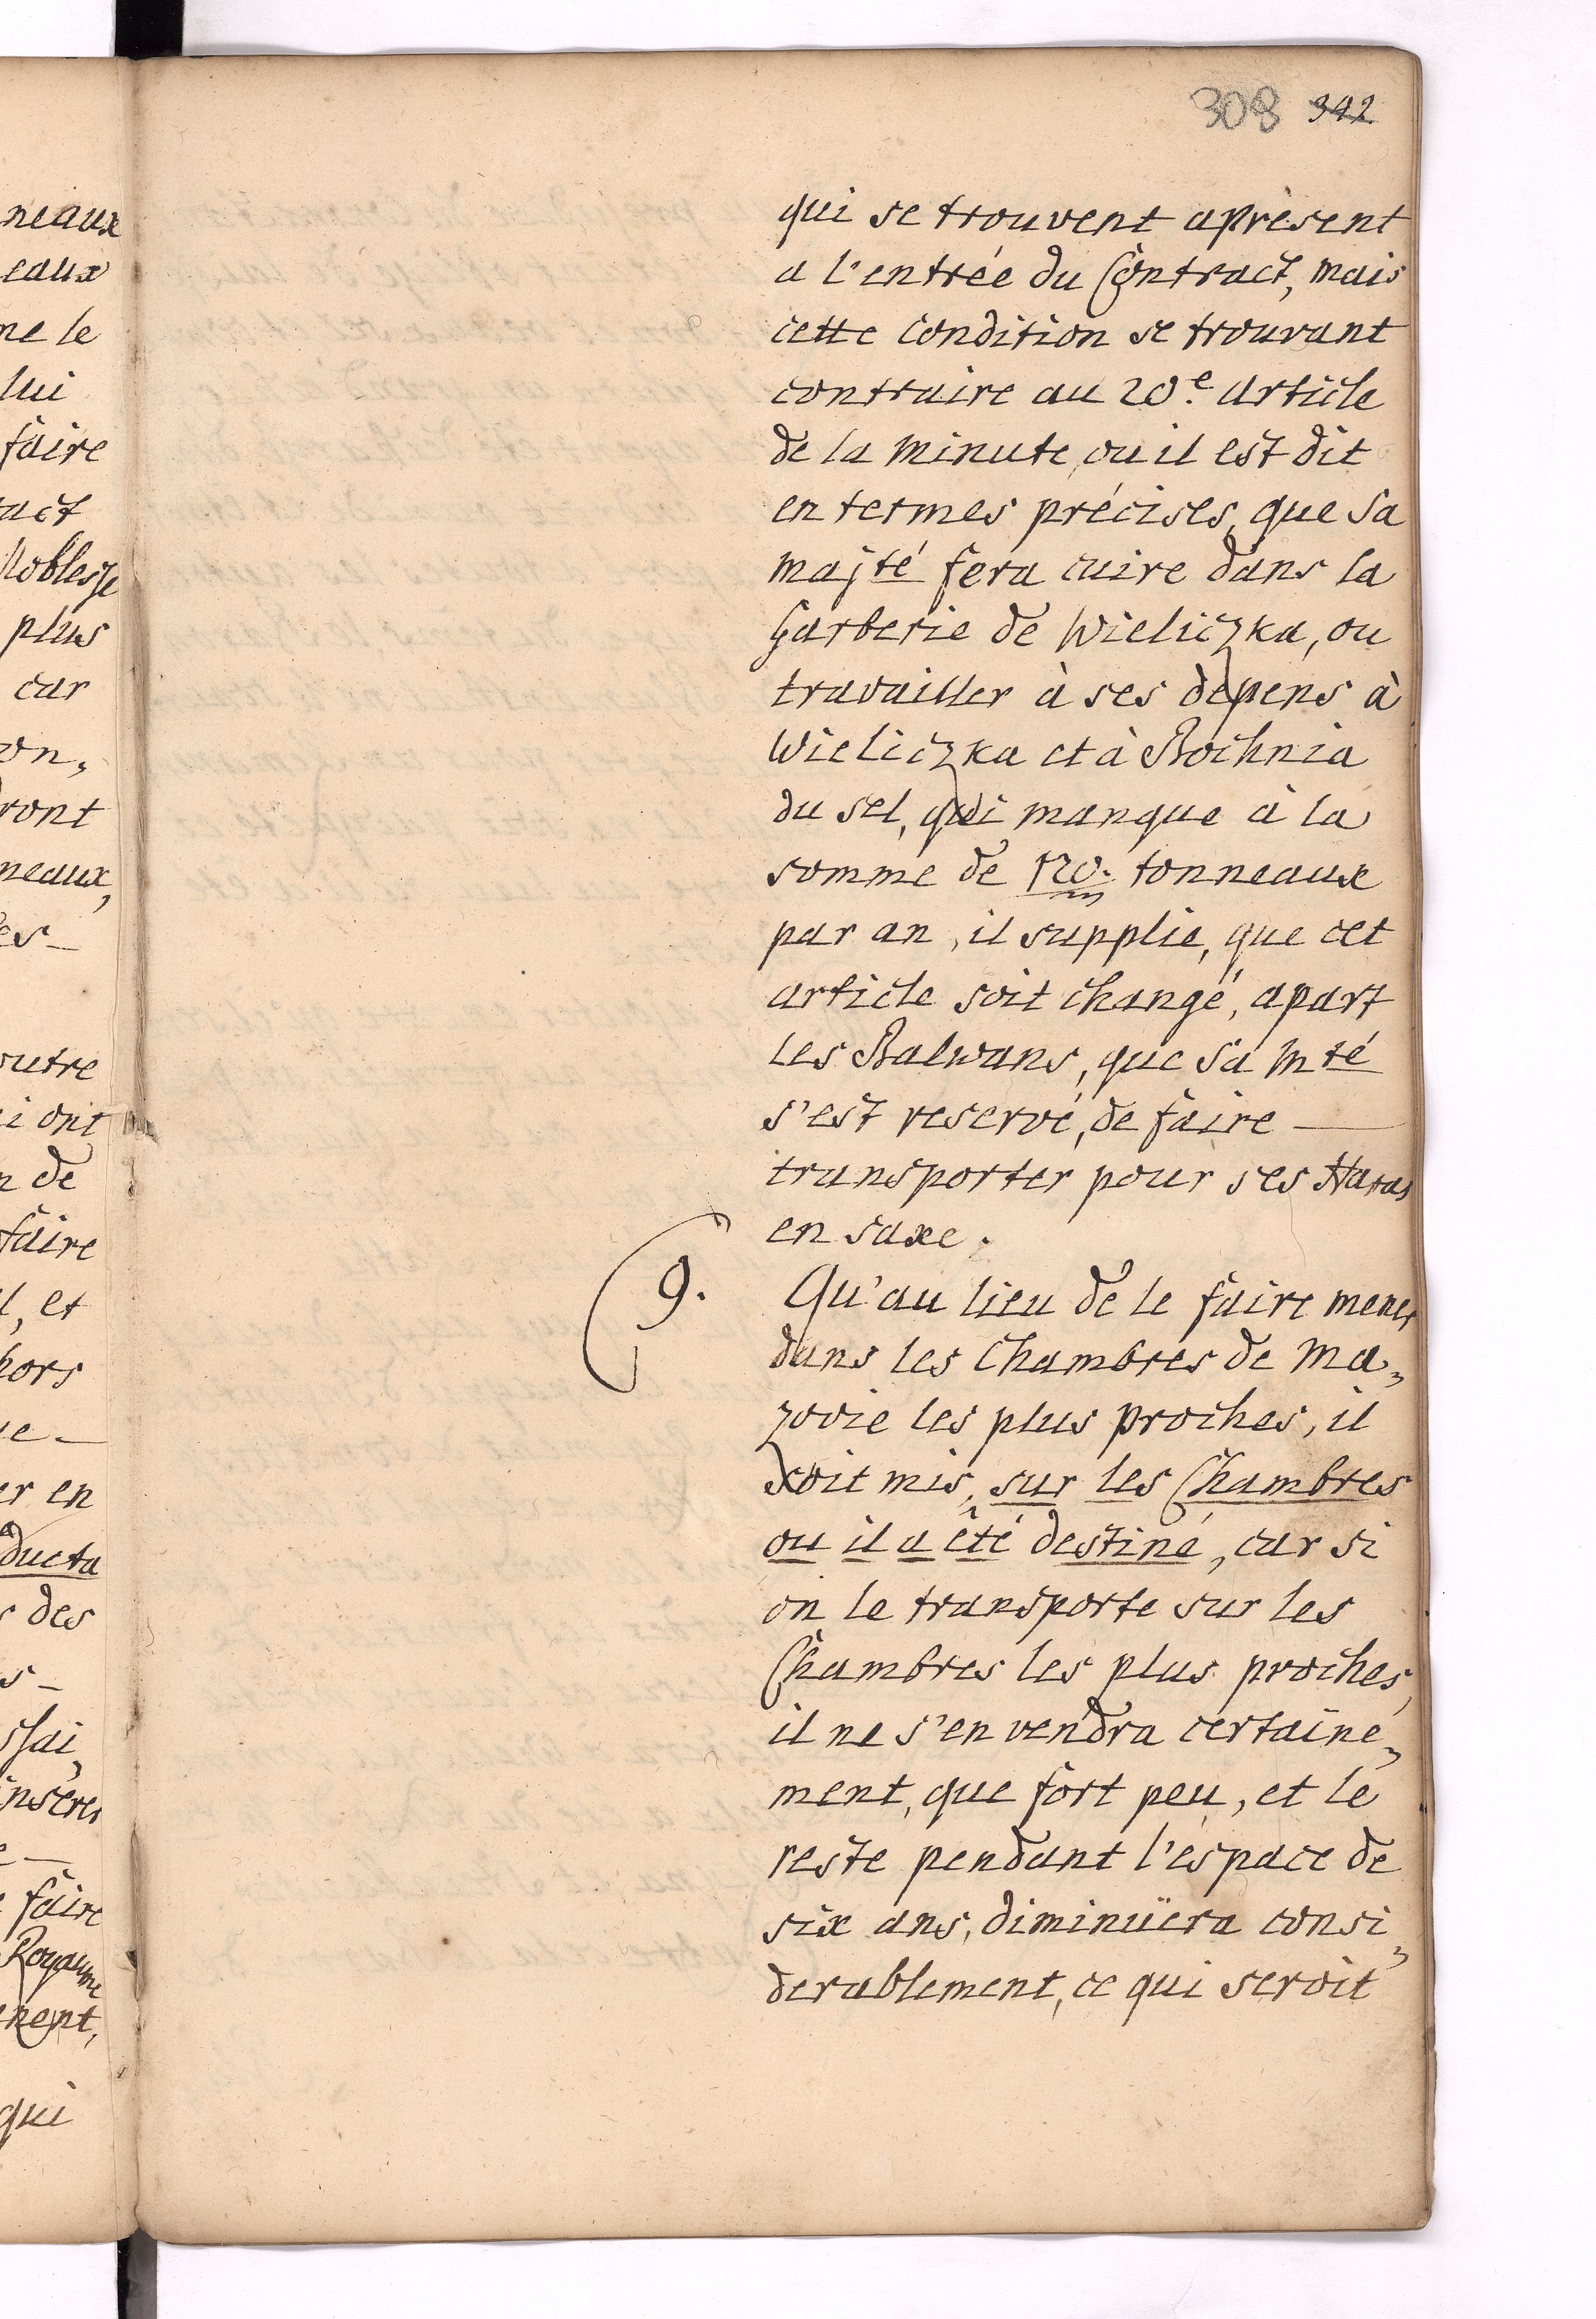 308 342
neaux
eaux
ne le
lui
faire
act
Noblesse
plus
car
on,
ront
neaux,
es-
outre
i ont
n de
faire
l, et
hors
ue-
er en
ducta
s des
s-
ssai,
inserer
e-
e faire
Royaume
ement,
qui
qui se trouvent aprèsent
a l'entrée du Contract, mais
cette condition se trouvant
contraire au 20e. article
de la minute, ou il est dit
en termes précises, que sa
majté fera cuire dans la
Garberie de Wieliczka, ou
travailler à ses dèpens à
Wieliczka et à Bochnia
du sel, qui manque à la
somme de 120.m tonneaux
par an, il supplie, que cet
article soit changé, apart
les Balwans, que sa mté
s'est reservé, de faire —
transporter pour ses Haras
en saxe.
9. Qu'au lieu de le faire mener
dans les Chambres de Ma„
zovie les plus proches, il
soit mis, sur les Chambres
ou il a êté destiné, car si
on le transporte sur les
Chambres les plus proches,
il ne s'en vendra certaine„
ment, que fort peu, et le
reste pendant l'espace de
six ans, diminüera consi„
derablement, ce qui seroit